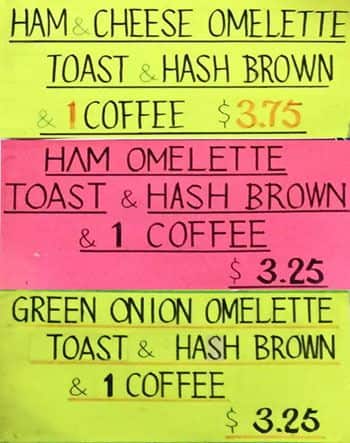 HAM & CHEESE OMELETTE
TOAST & HASH BROWN
& 1 COFFEE $3.75
HAM OMELETTE
TOAST & HASH BROWN
& 1 COFFEE
$ 3.25
GREEN ONION OMELETTE
TOAST & HASH BROWN
& 1 COFFEE
$ 3.25